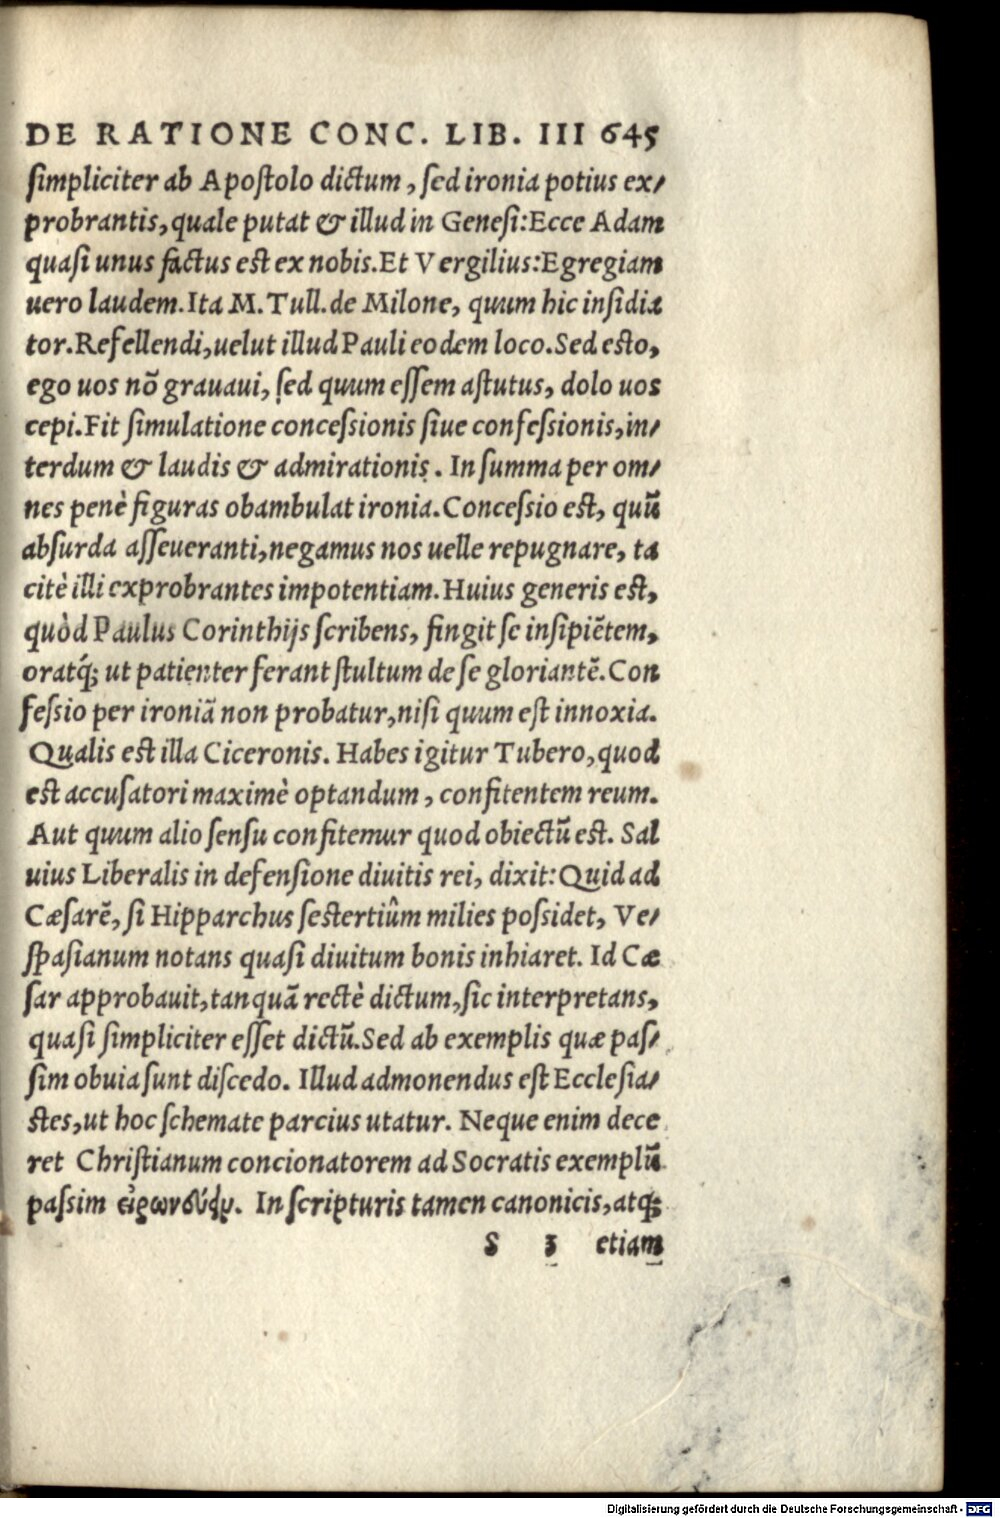 DE RATIONE CONC. LIB. III 645
simpliciter ab Apostolo dictum, sed ironia potius ex/
probrantis, quale putat & illud in Genesi: Ecce Adam
quasi unus factus est ex nobis. Et Vergilius: Egregiam
uero laudem. Ita M. Tull. de Milone, quum hic insidia
tor. Refellendi, uelut illud Pauli eodem loco. Sed esto,
ego uos nõ grauaui, sed quum essem astutus, dolo uos
cepi. Fit simulatione concessionis siue confessionis, in/
terdum & laudis & admirationis. In summa per om/
nes penè figuras obambulat ironia. Concessio est, quũ
absurda asseueranti, negamus nos uelle repugnare, ta
citè illi exprobrantes impotentiam. Huius generis est,
quòd Paulus Corinthijs scribens, fingit se insipiẽtem,
oratq́; ut patienter ferant stultum de se gloriantẽ. Con
fessio per ironiã non probatur, nisi quum est innoxia.
Qualis est illa Ciceronis. Habes igitur Tubero, quod
est accusatori maximè optandum, confitentem reum.
Aut quum alio sensu confitemur quod obiectũ est. Sal
uius Liberalis in defensione diuitis rei, dixit: Quid ad
Cæsarẽ, si Hipparchus sestertiûm milies possidet, Ve/
spasianum notans quasi diuitum bonis inhiaret. Id Cæ
sar approbauit, tanquã rectè dictum, sic interpretans,
quasi simpliciter esset dictũ. Sed ab exemplis quæ pas/
sim obuia sunt discedo. Illud admonendus est Ecclesia/
stes, ut hoc schemate parcius utatur. Neque enim dece
ret Christianum concionatorem ad Socratis exemplũ
passim εἰρωνεύεσθαι. In scripturis tamen canonicis, atq;
S 3 etiam
Digitalisierung gefördert durch die Deutsche Forschungsgemeinschaft - DFG